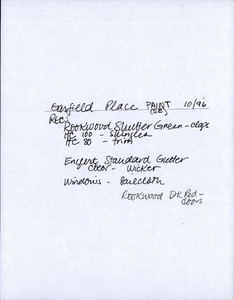 Garfield Place PAINT 10/96
(SB)
REC:
Rookwood Shutter Green - claps
HC 100 - shingles
HC 80 - trim
Englert Standard Gutter
color - Wicker
Windows - Sailcloth
Rookwood DK Red -
doors